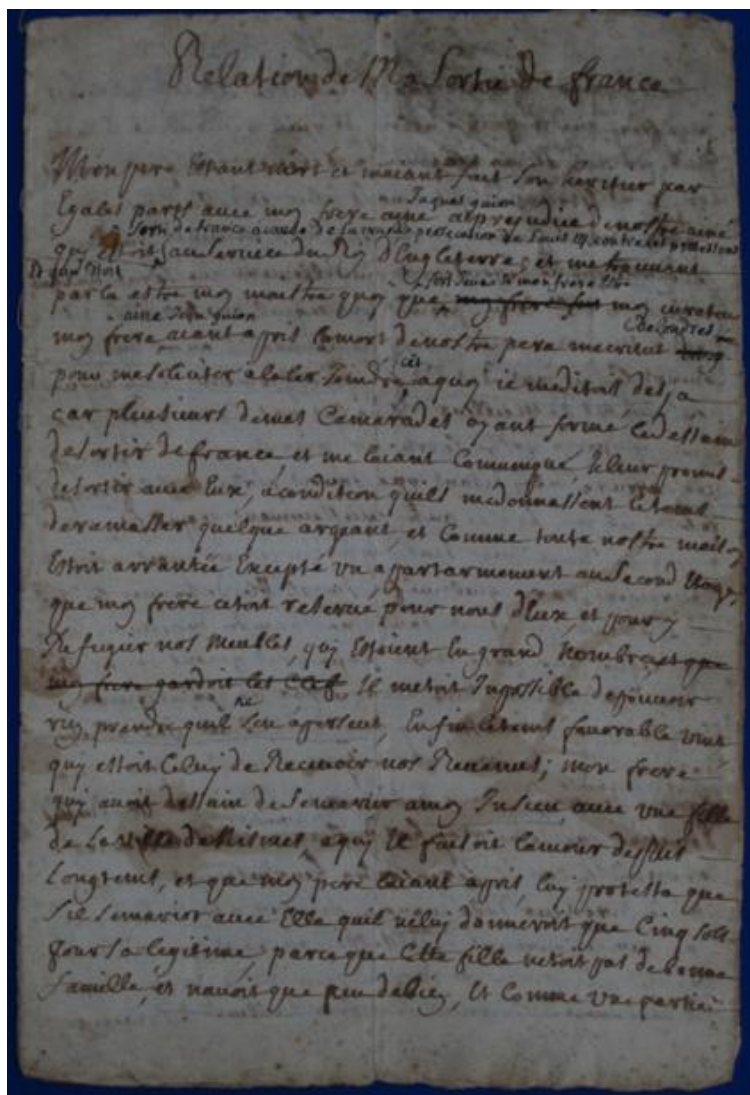 Relation de Ma Sortie de france
Mon pere Estant mort et maiant fait son heritier par
Jaques guion
Egales parts avec mon frere ainé au prejudice de nostre ainé
Sorti de france a cause de la persecution de Louis contre les protestans
quy Estoit au Service du Roy d'Engleterre; et me trouvant
par la estre mon maistre quoy que mon frere fut mon curateur
ainé Jean guion
mon frere aiant apris la mort de nostre pere mecrivit
De Londres
pour me soliciter a laler Joindre, aquoy ie meditois desja
car plusieurs de mes Camarades ayant formé le dessain
de sortir de france, et me laiant Comuniqué, Je leur promis
de sortir avec Eux, a condition quils me donnassent le tems
de ramasser quelque argeant, et Comme toute nostre maison
Estoit arrantée Excepté un appartarmement au Second Etage,
que mon frere cetoit reservé pour nous d'Eux, et pour y
Refugier nos Meubles, quy Estoient En grand Nombre, et que
mon frere gardoit les Clef Il metoit Inpossible de pouvoir
rien prendre quil ne sen apersent, Enfin le tems favorable vint
quy estoit Celuy de Recevoir nos Revenus; mon frere
quy avoit dessain de se marier a mon Insceu, avec une fille
de La ville de Nismes, a quy Il faisoit lamour depuis
Longtems, et que mon pere laiant apris, luy protesta que
Sil se marioit avec Elle quil ne luy donneroit que Cinq Sols
pour sa legitime parce que Cette fille netoit pas de bonne
famille, et navoit que peu de bien, Et Comme une partie